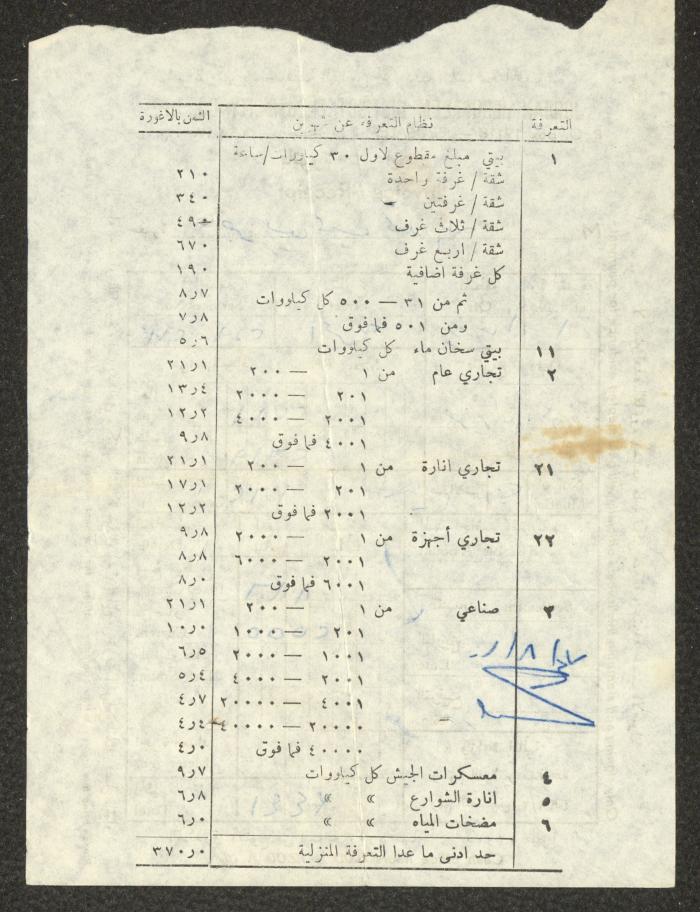 التعرفة نظام التعرفة عن شهرين الثمن بالاغورة
١ بيتي مبلغ مقطوع لاول ٣٠ كيلووات/ساعة
شقة / غرفة واحدة ٢١٠
شقة / غرفتين ٣٤٠
شقة / ثلاث غرف ٤٩٠
شقة / اربع غرف ٦٧٠
كل غرفة اضافية ١٩٠
ثم من ٣١ — ٥٠٠ كل كيلووات ٨٫٧
ومن ٥٠١ فما فوق ٧٫٨
١١ بيتي سخان ماء كل كيلووات ٥٫٦
٢ تجاري عام من ١ — ٢٠٠ ٢١٫١
٢٠١ — ٢٠٠٠ ١٣٫٤
٢٠٠١ — ٤٠٠٠ ١٢٫٢
٤٠٠١ فما فوق ٩٫٨
٢١ تجاري انارة من ١ — ٢٠٠ ٢١٫١
٢٠١ — ٢٠٠٠ ١٧٫١
٢٠٠١ فما فوق ١٢٫٢
٢٢ تجاري أجهزة من ١ — ٢٠٠٠ ٩٫٨
٢٠٠١ — ٦٠٠٠ ٨٫٨
٦٠٠١ فما فوق ٨٫٠
٣ صناعي من ١ — ٢٠٠ ٢١٫١
٢٠١ — ١٠٠٠ ١٠٫٠
١٠٠١ — ٢٠٠٠ ٦٫٥
٢٠٠١ — ٤٠٠٠ ٥٫٤
٤٠٠١ — ٢٠٠٠٠ ٤٫٧
٢٠٠٠٠ — ٤٠٠٠٠ ٤٫٤
٤٠٠٠٠ فما فوق ٤٫٠
٤ معسكرات الجيش كل كيلووات ٩٫٧
٥ انارة الشوارع » » ٦٫٨
٦ مضخات المياه » » ٦٫٠
حد ادنى ما عدا التعرفة المنزلية ٣٧٠٫٠